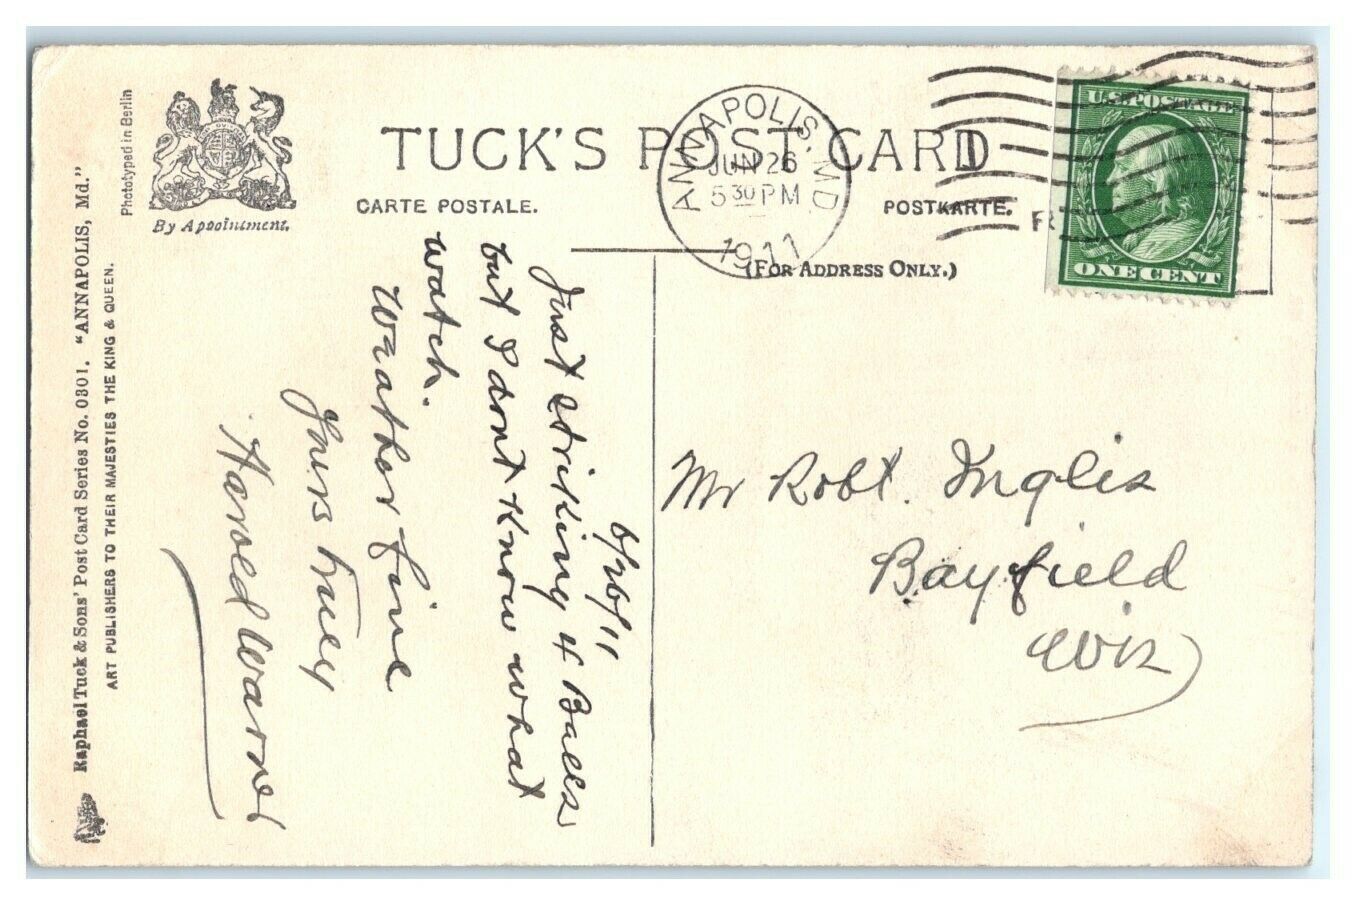 TUCK'S POST CARD
CARTE POSTALE.
POSTKARTE.
(FOR ADDRESS ONLY.)
By Appointment.
Phototyped in Berlin
Raphael Tuck & Sons' Post Card Series No. 0301. "ANNAPOLIS, Md."
ART PUBLISHERS TO THEIR MAJESTIES THE KING & QUEEN.
ANNAPOLIS, MD.
JUN 26
5 30 PM
1911
U.S. POSTAGE
ONE CENT
6/26/11
Just striking 4 Bells
but I dont know what
watch.
Weather fine
Yours truly
Harold
Mr Robt. Inglis
Bayfield
Wis